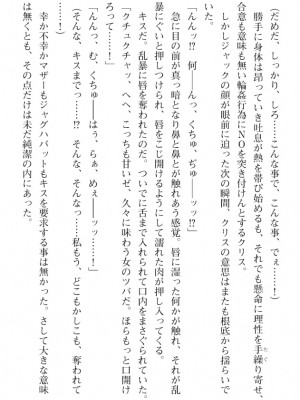 （だめだ、しっかり、しろ……こんな事で、こんな、事でぇ……！）
　勝手に身体は昂っていき吐息が熱を帯び始めるも、それでも懸命に理性を手繰り寄せ、
合意も意味も無い輪姦行為にNOを突き付けんとするクリス。
　しかしジャックの顔が眼前に迫った次の瞬間、クリスの意思はまたも根底から揺らいで
いた。
「んんッ!?　何――んっ、くちゅ、ぢゅ――ッッ!?」
　急に目の前が真っ暗となり鼻と鼻とが触れあう感覚。唇に湿った何かが触れ、それが乱
暴にぐいと押しつけられ、唇をこじ開けるようにして濡れた肉が押し入ってくる。
　キスだ。乱暴に唇を奪われたのだ。ついでに舌まで入れられて口内をまさぐられていた。
「クチュクチャッ、へへ、こっちも甘いゼ、久々に味わう女のツバだ。ほらもっと口開け
ろって……！」
「んんっ、む、くちゅ――はぅ、らぁ、めぇ――ッッ……！」
（そんな、キスまでっ……!?　そんな、そんなっ……私もう、どこもかしこも、奪われて
……！）
　幸か不幸かマザーもジャグハバットもキスを要求する事は無かった。さして大きな意味
は無くとも、その点だけは未だ純潔の内にあった。